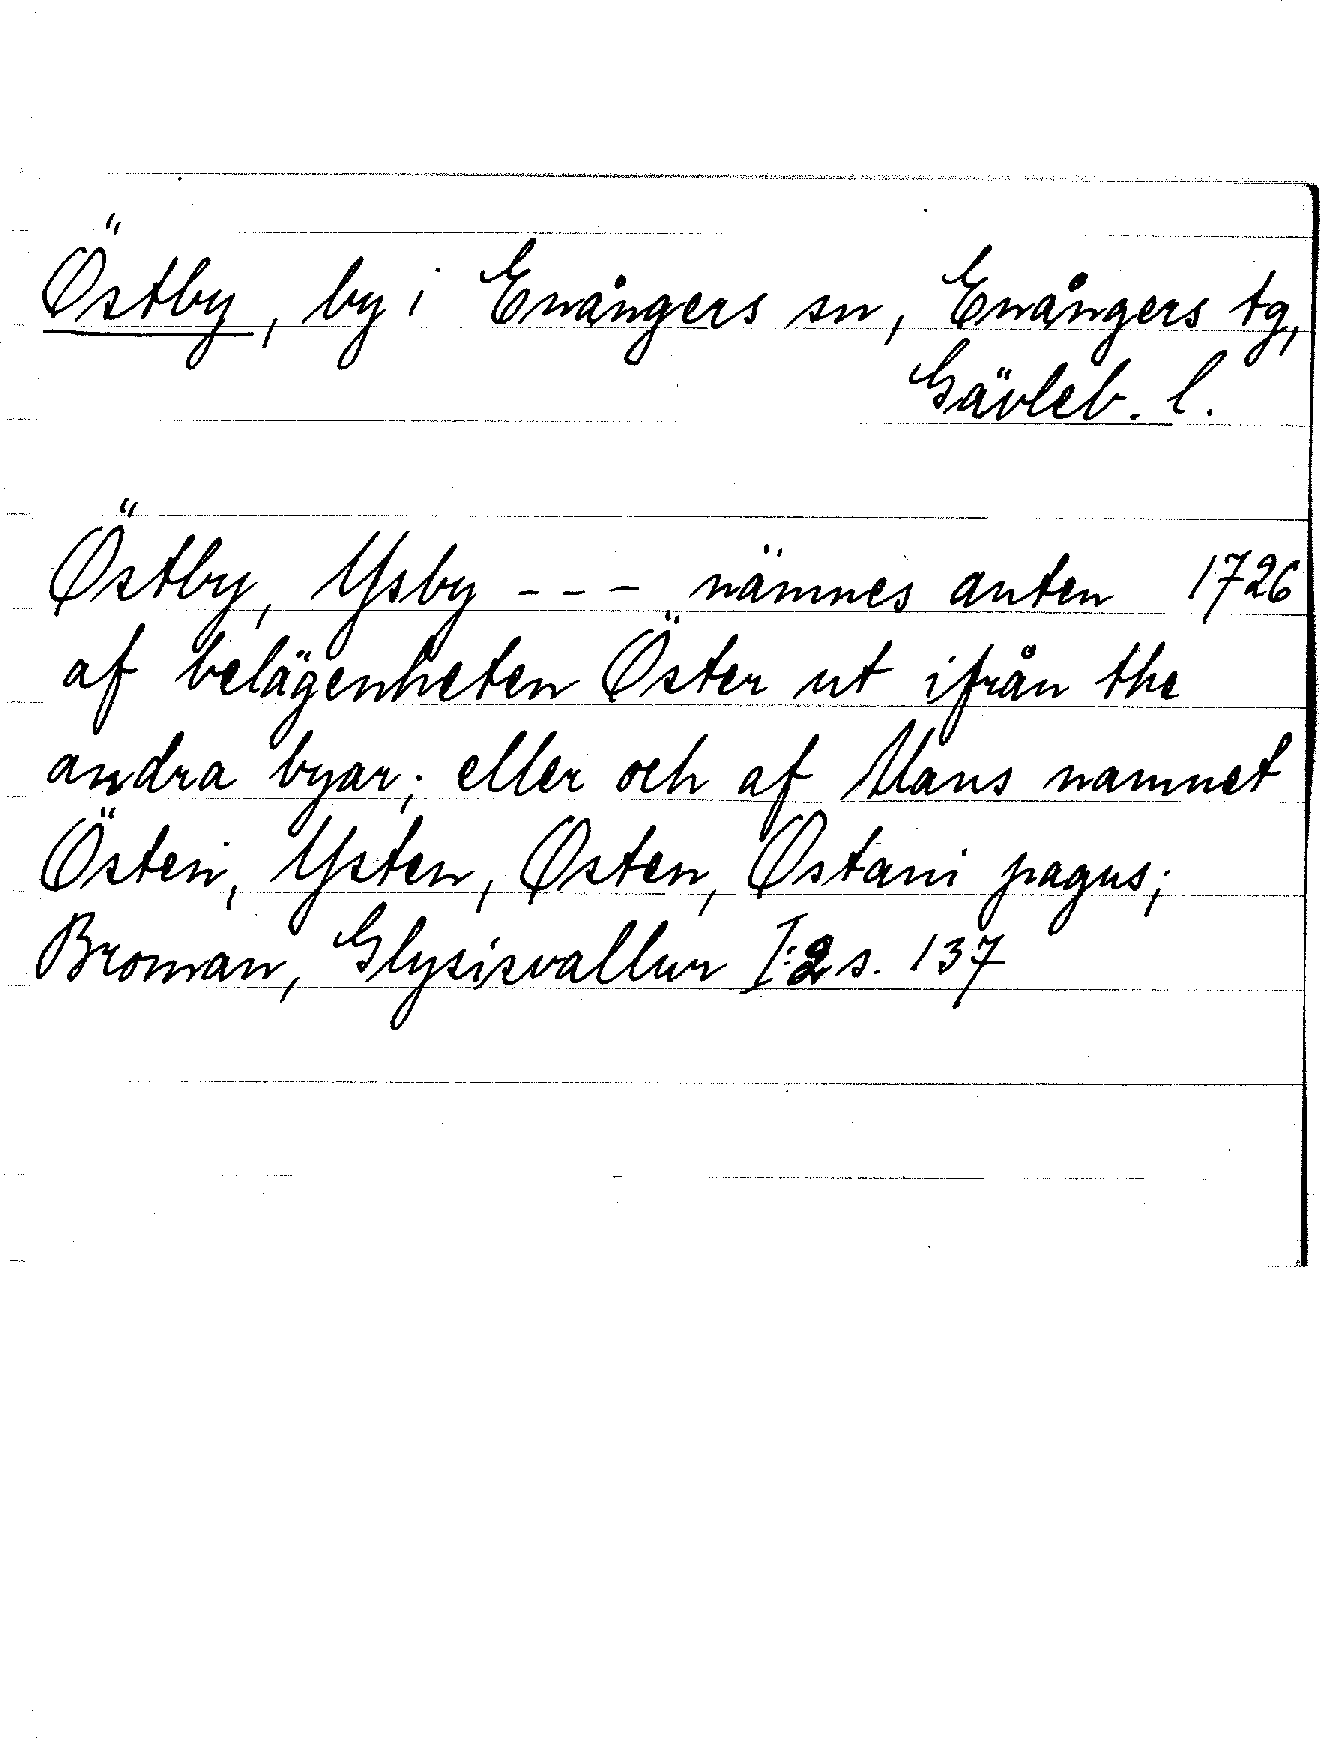 Östby, by i Enångers sn, Enångers tg,
Gävleb. l.
Östby, Ysby --- nämnes anten 1726
af belägenheten Öster ut ifrån the
andra byar; eller och af Mans namnet
Östen, Ysten, Osten, Ostani pagus;
Broman, Glysisvallur I:2 s. 137